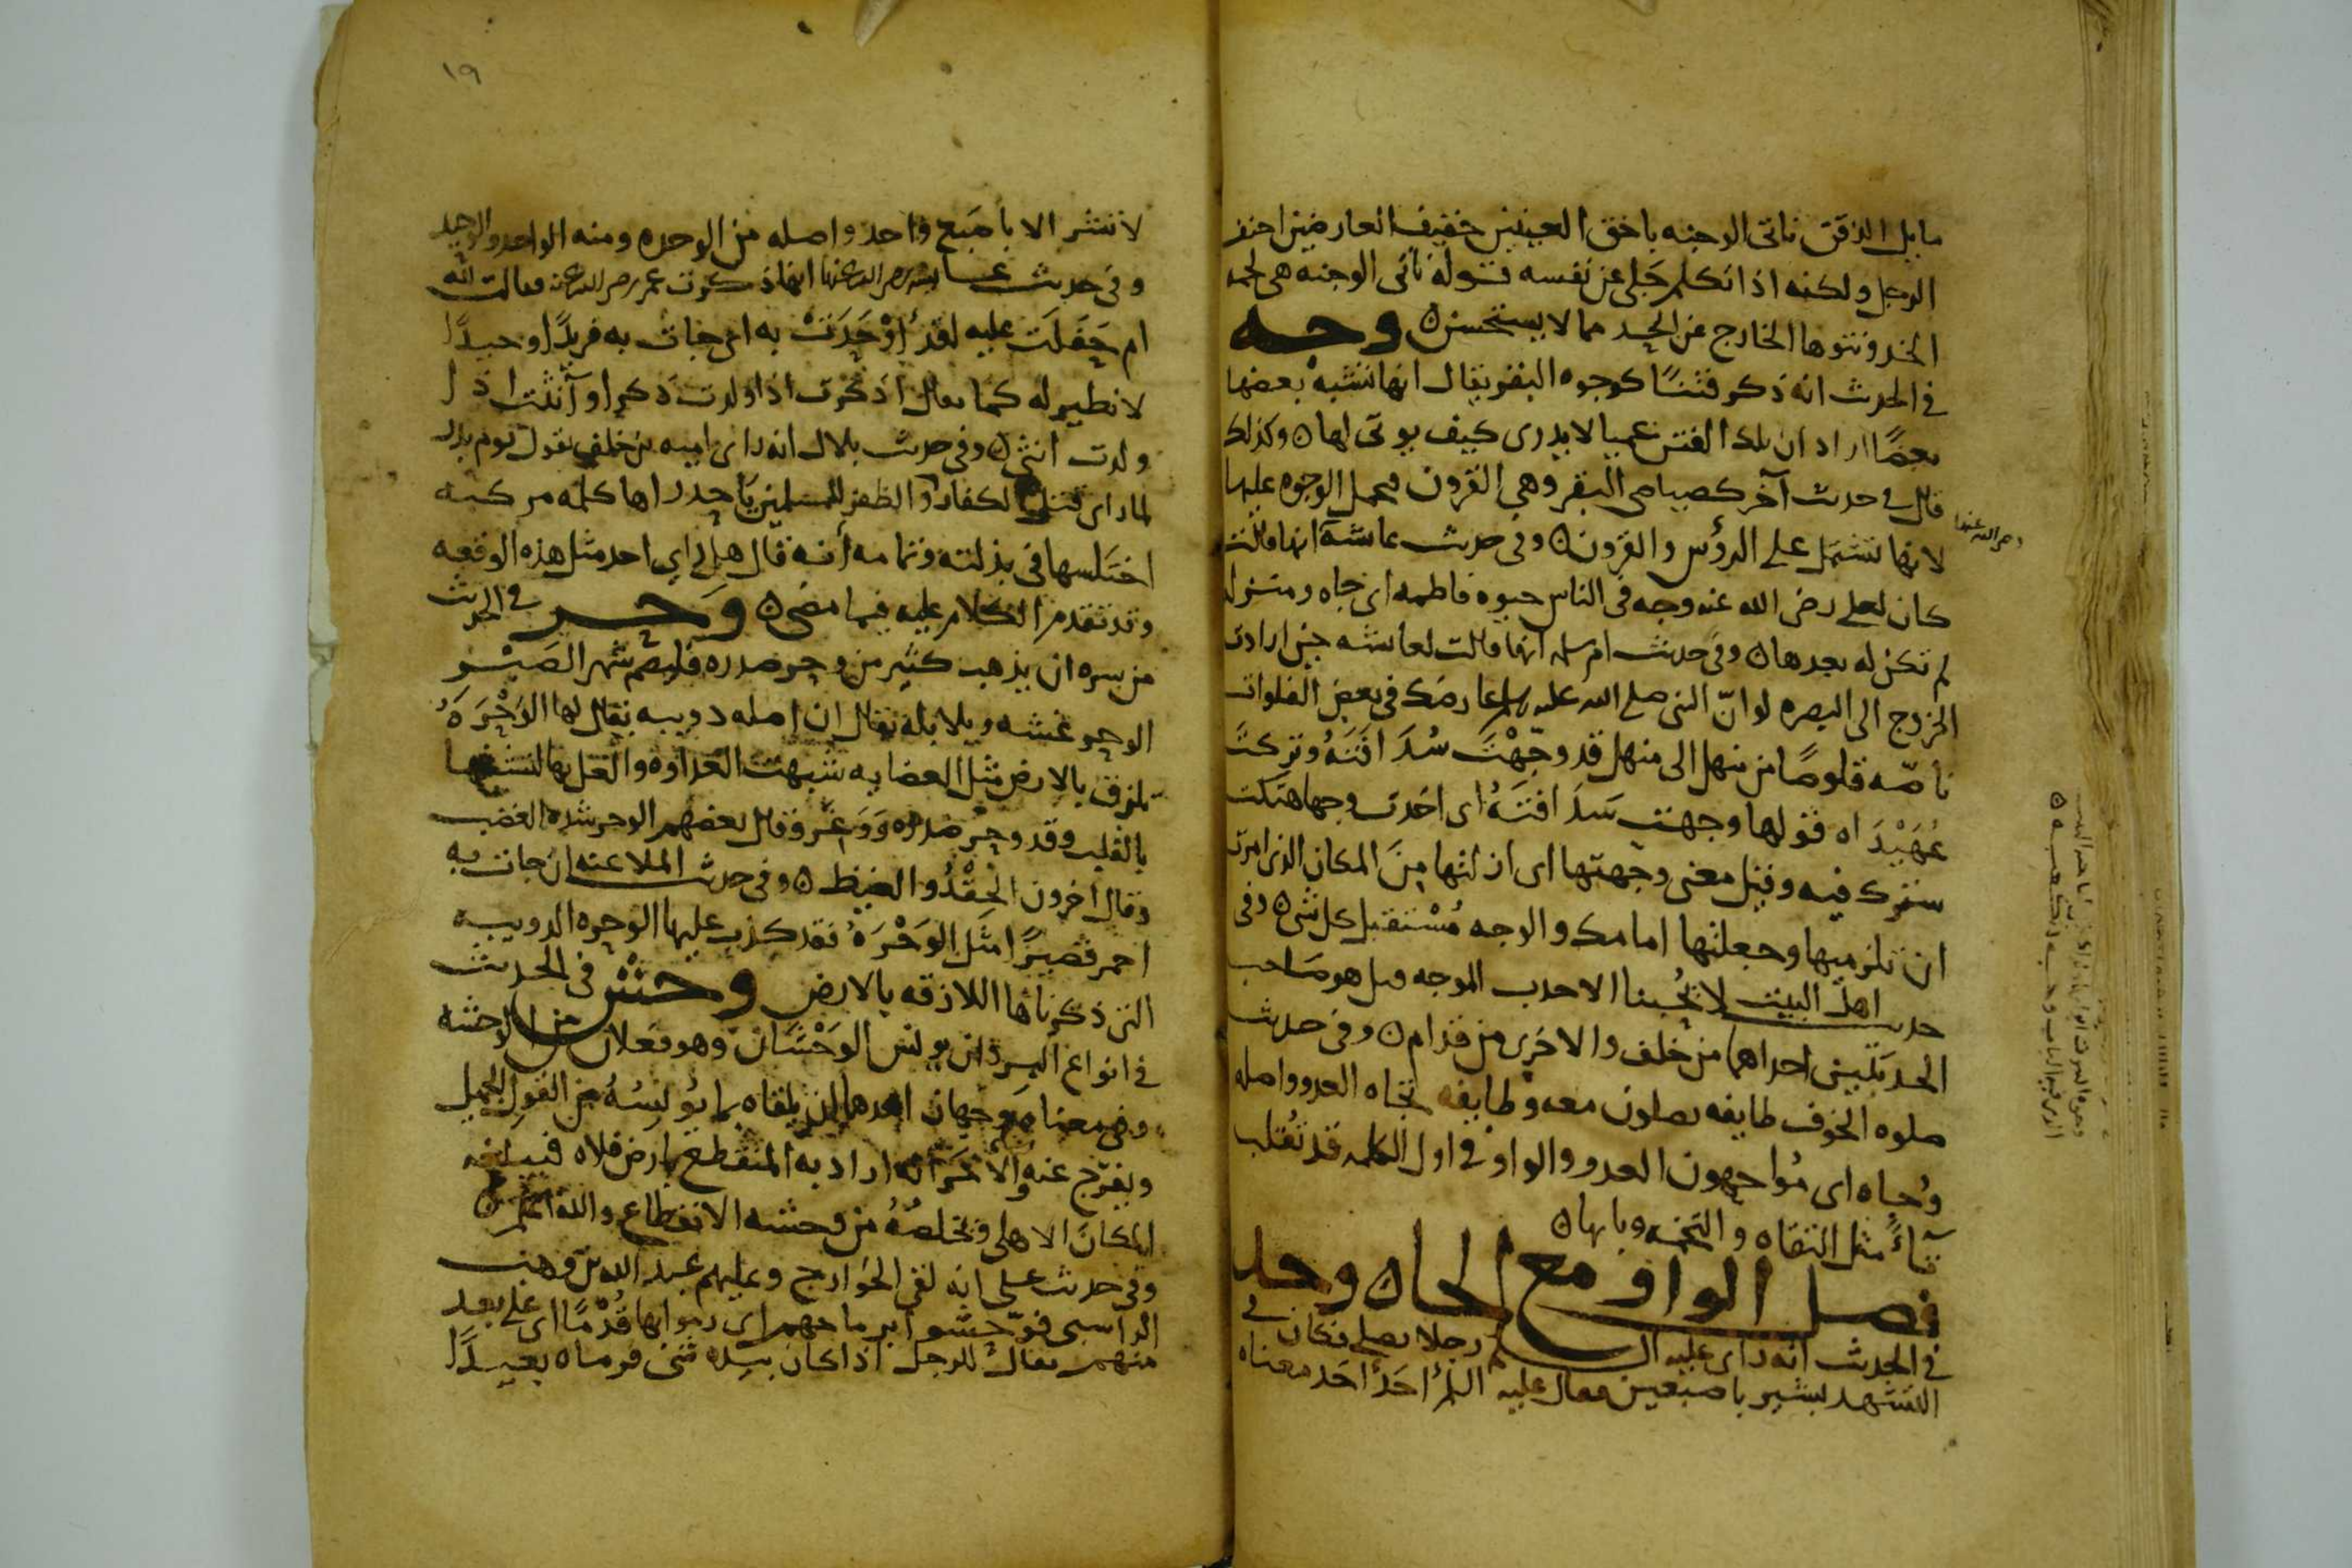 مايل الذقن ناتى الوجنه باخق العينين خفيف العارضين احنف
الرجل ولكنه اذا تكلم جَلى عن نفسه قوله ناتى الوجنه هى لحمه
الخد ونتوها الخارج عن الحد مما لا يستحسن ن وجه
فى الحدىث انه ذكر فتنًا كوجوه البقر يقال انها تشبه بعضها
بعضًا اراد ان تلك الفتن عميا لا يدرى كيف يوتى لها ن وكذلك
قال فى حدىث آخر كصياصى البقر وهى القرون فحمل الوجوه عليها
لانها تشتمل على الرؤس والقرون ن وفى حدىث عائشة انها قالت
رضى الله عنها
كان لعلى رضى الله عنه وجه فى الناس حيوة فاطمه اى جاه ومنزله
لم تكن له بعدها ن وفى حدىث ام سلمه انها قالت لعائشه حين ارادت
الخروج الى البصره لو انّ النبى صلى الله عليه وسلم عارضك فى بعض الفلوات
ناصّه قلوصًا من منهل الى منهل قد وجّهْتَ سُدَافَتَهُ وتركت
عُهَيْدَاه قولها وجهت سَدَافَتَهُ اى اخذت وجها هتكت
سترك فيه وقيل معنى وجهتها اى ازلتها مِنَ المكان الذى امرت
ان تلزميها وجعلتها امامك والوجه مُسْتقبل كل شى ن وفى
حدىث اهل البيت لا يُحبنا الاحدب الموجه قيل هو صاحب
الحدبتين احداهما من خلف والاخرى من قدام ن وفى حدىث
صلوه الخوف طايفه يصلون معه وطايفه تجاه العدو واصله
وُجاه اى مُواجهون العدو والواو فى اول الكلمه قد تُقلب
تآءً مثل التقاه والتخمه وبابها ن
فصل الواو مع الحا ن وحد
فى الحدىث انه راى عليه السلم رجلا يصلى فكان فى
التشهد يشير باصبعين فقال عليه السلم أحَدْ أحَد معناه
١٩
لا تشر الا باصَبع واحد واصله من الوحده ومنه الواحد والوحيد
وفى حدىث عائشه رضى الله عنها انها ذكرت عمر رضى الله عنه فقالت لله
ام حَفَلَت عليه لقد أوْحَدَتْ به اى جات به فريدًا وحيدًا
لا نظير له كما يقال اذكرت اذا ولدت ذكرا وآنثت اذا
ولدت انثى ن وفى حدىث بلال انه راى اميه بن خلف يقول يوم بدر
لما راى قتل الكفار والظفر للمسلمين يا حدراها كلمه مركبه
اختلسها فى بذلته وتمامه أنه قال هل راى احد مثل هذه الوقعه
وقد تقدم الكلام عليه فيما مضى ن وَحر فى الحدىث
من سره ان يذهب كثير من وحر صدره فليصم شهر الصَبْر
الوحر غشه وبلابله يقال ان اصله دويبه يقال لها الوَحْرَةُ
تلزق بالارض مثل العضايه شبهت العداوة والغل بها لتشبثها
بالقلب وقد وحر صدره وَوَغر وقال بعضهم الوحر شدة الغضب
وقال اخرون الحِقْدُ والغيظ ن وفى حدىث الملاعنه ان جات به
احمر قصيرًا مثل الوَحْرَةُ فقد كذب عليها الوحره الدويبه
التى ذكرناها اللازقه بالارض وحش فى الحدىث
فى انواع البر وان يونس الوَحْشَان وهو فعلان من الوحشه
وفى معناه وجهان احدهما ان يلقاه بما يؤنِسُهُ من القول الجميل
ويفرّج عنه والآخر انه اراد به المنقطع بارض فلاه فيبلغه
المكان الاهل وتخلصُهُ من وحشه الانقطاع والله اعلم ن
وفى حدىث على انه لقى الخوارج وعليهم عبد الله بن وهب
الراسبى فوّحشوا برماحهم اى رموا بها قُدْمًا اى على بعد
منهم يقال للرجل اذا كان بيده شى فرماه بعيدًا